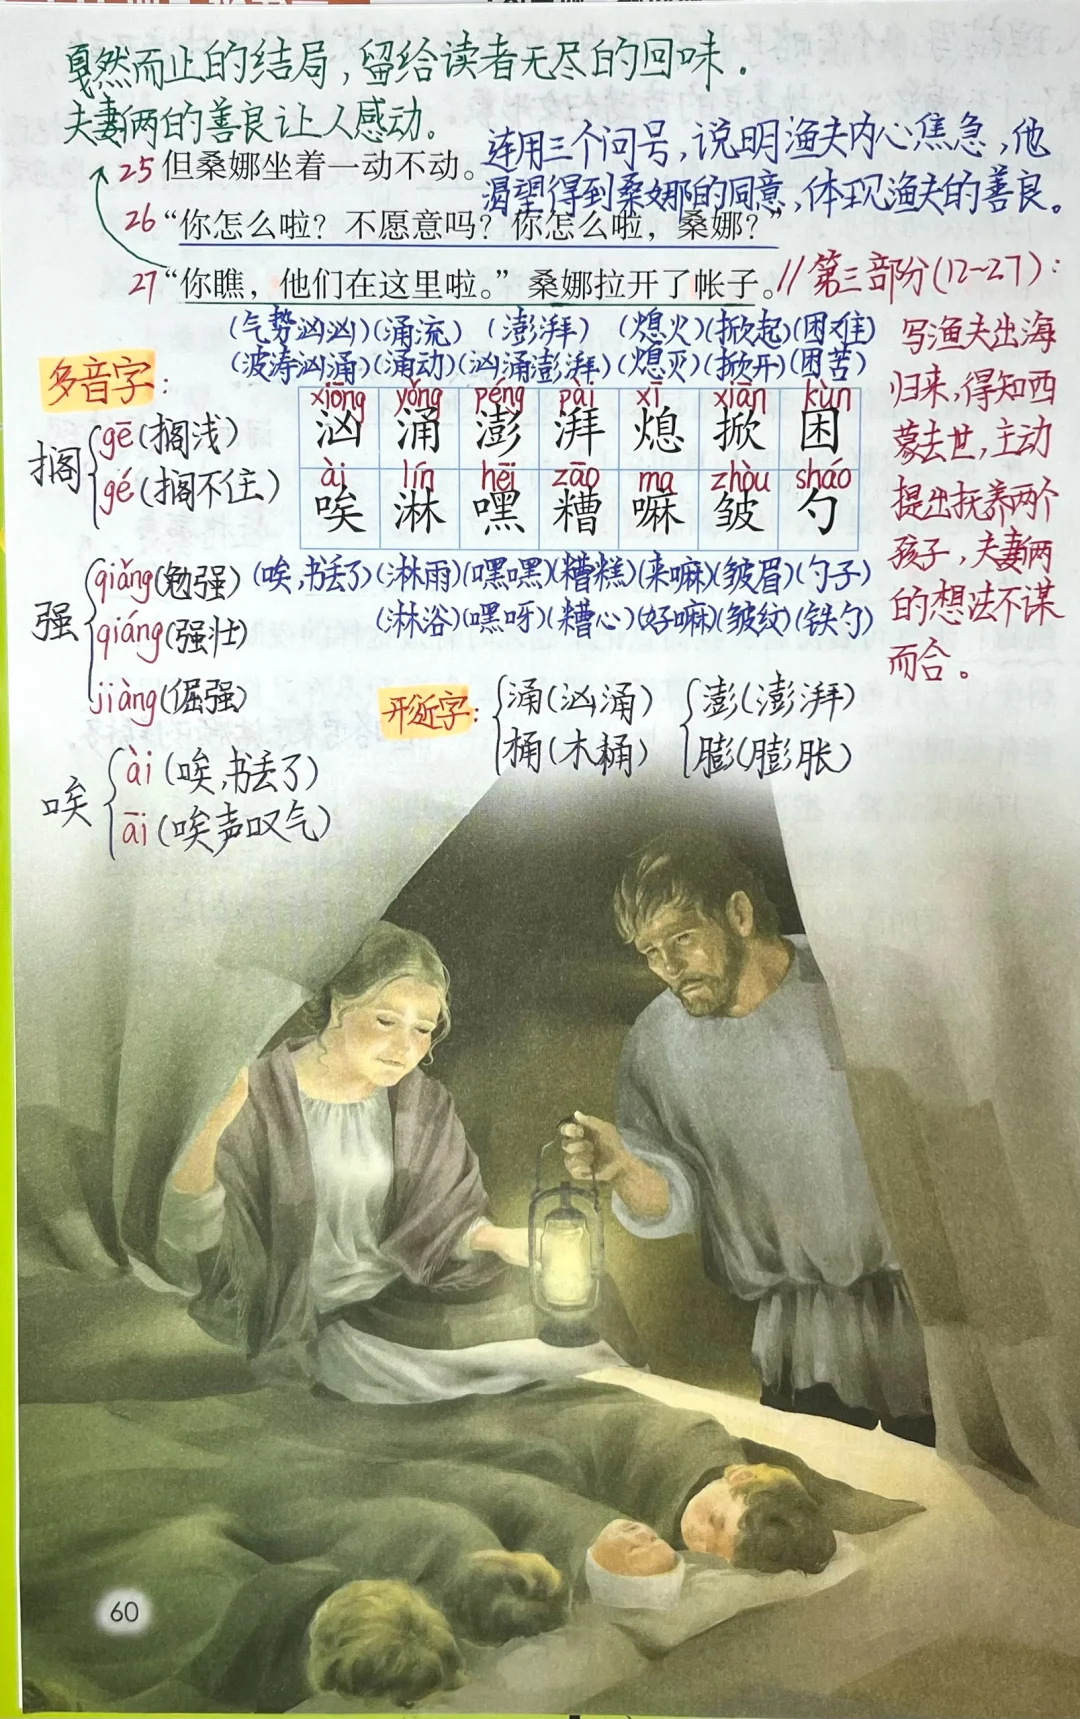 戛然而止的结局，留给读者无尽的回味．
夫妻俩的善良让人感动．
连用三个问号，说明渔夫内心焦急，他
渴望得到桑娜的同意，体现渔夫的善良。
25 但桑娜坐着一动不动。
26 “你怎么啦？不愿意吗？你怎么啦，桑娜？”
27 “你瞧，他们在这里啦。”桑娜拉开了帐子。
//第三部分(12~27)：
写渔夫出海
归来，得知西
蒙去世，主动
提出抚养两个
孩子，夫妻俩
的想法不谋
而合。
(气势汹汹)(涌流)(澎湃)(熄火)(掀起)(困难)
(波涛汹涌)(涌动)(汹涌澎湃)(熄灭)(掀开)(困苦)
xiōng yǒng péng pài xī xiān kùn
汹 涌 澎 湃 熄 掀 困
ài lín hēi zāo ma zhòu sháo
唉 淋 嘿 糟 嘛 皱 勺
(唉,书丢了)(淋雨)(嘿嘿)(糟糕)(来嘛)(皱眉)(勺子)
(淋浴)(嘿呀)(糟心)(好嘛)(皱纹)(铁勺)
多音字：
搁 gē(搁浅)
gé(搁不住)
强 qiǎng(勉强)
qiáng(强壮)
jiàng(倔强)
唉 ài(唉,书丢了)
āi(唉声叹气)
形近字：
涌(汹涌) 澎(澎湃)
桶(木桶) 膨(膨胀)
60